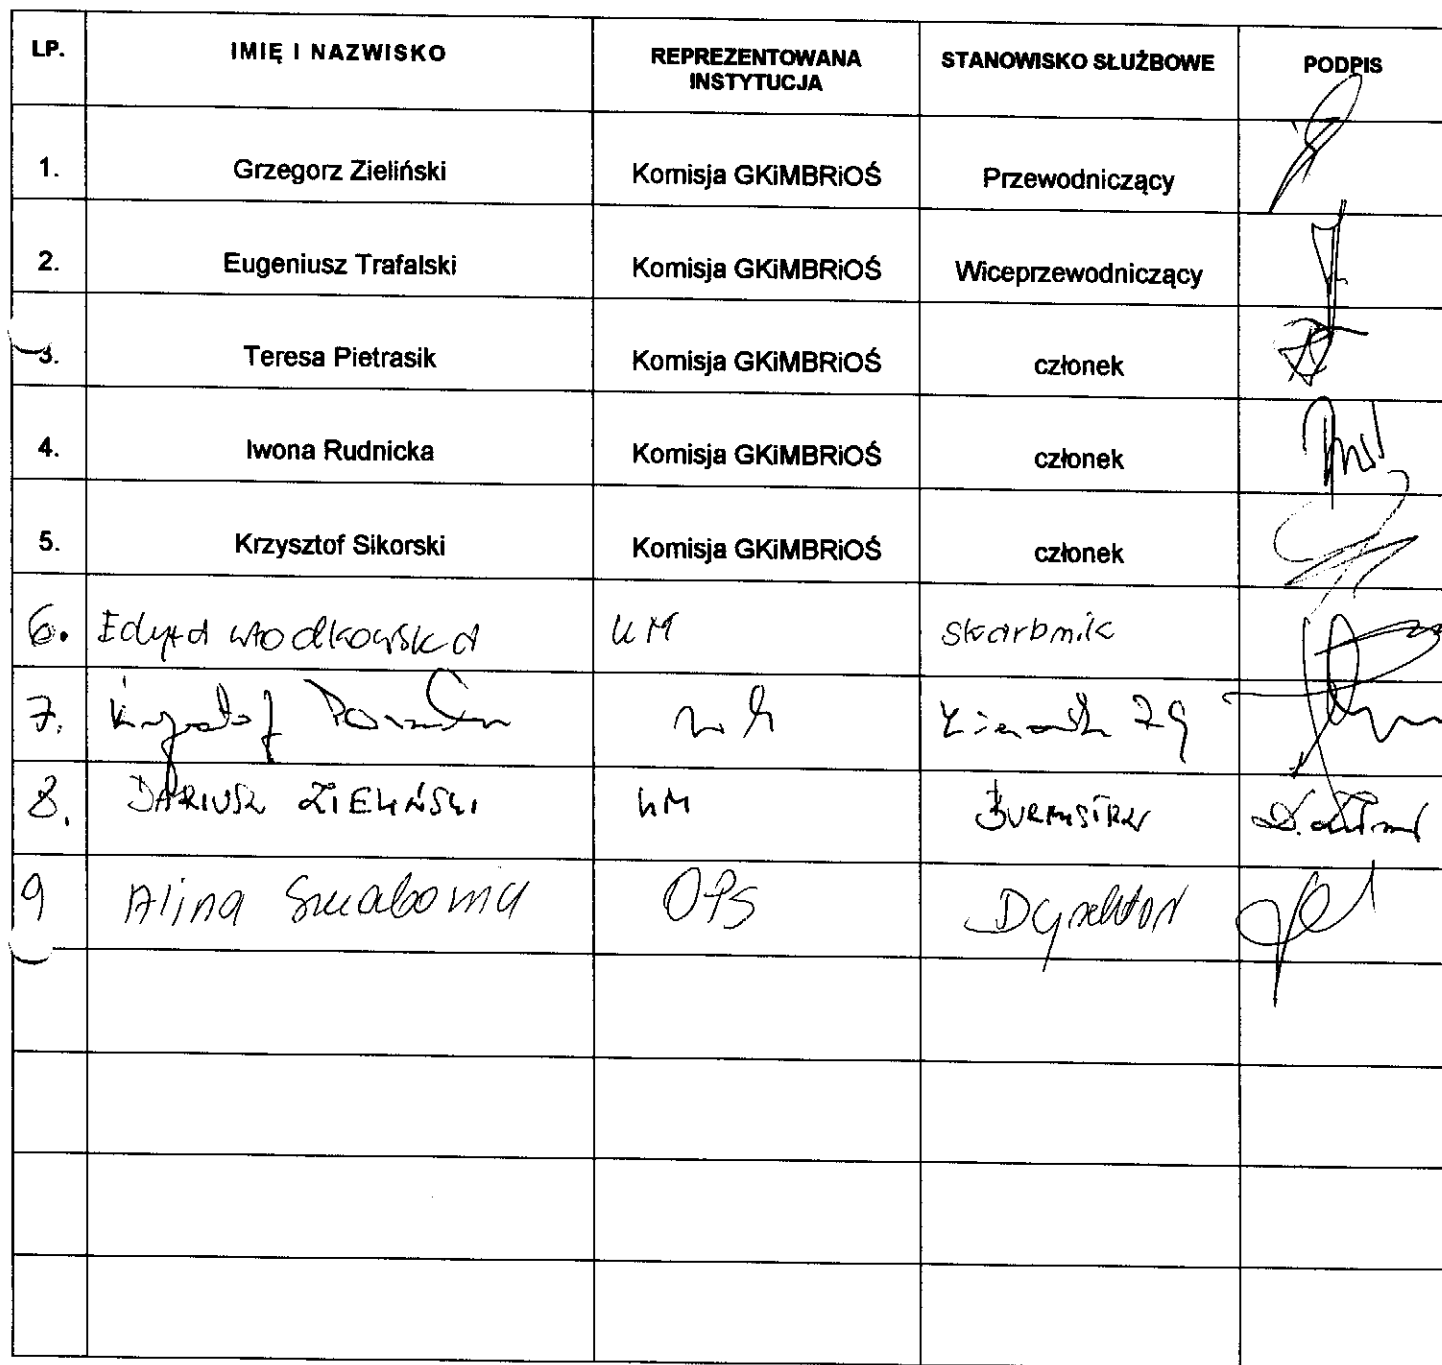 LP. IMIĘ I NAZWISKO REPREZENTOWANA INSTYTUCJA STANOWISKO SŁUŻBOWE PODPIS
1. Grzegorz Zieliński Komisja GKiMBRiOŚ Przewodniczący
2. Eugeniusz Trafalski Komisja GKiMBRiOŚ Wiceprzewodniczący
3. Teresa Pietrasik Komisja GKiMBRiOŚ członek
4. Iwona Rudnicka Komisja GKiMBRiOŚ członek
5. Krzysztof Sikorski Komisja GKiMBRiOŚ członek
6. Edyta Włodkowska UM Skarbnik
7. Krzysztof
8. DARIUSZ ZIELIŃSKI UM BURMISTRZ
9 Alina OPS Dyrektor